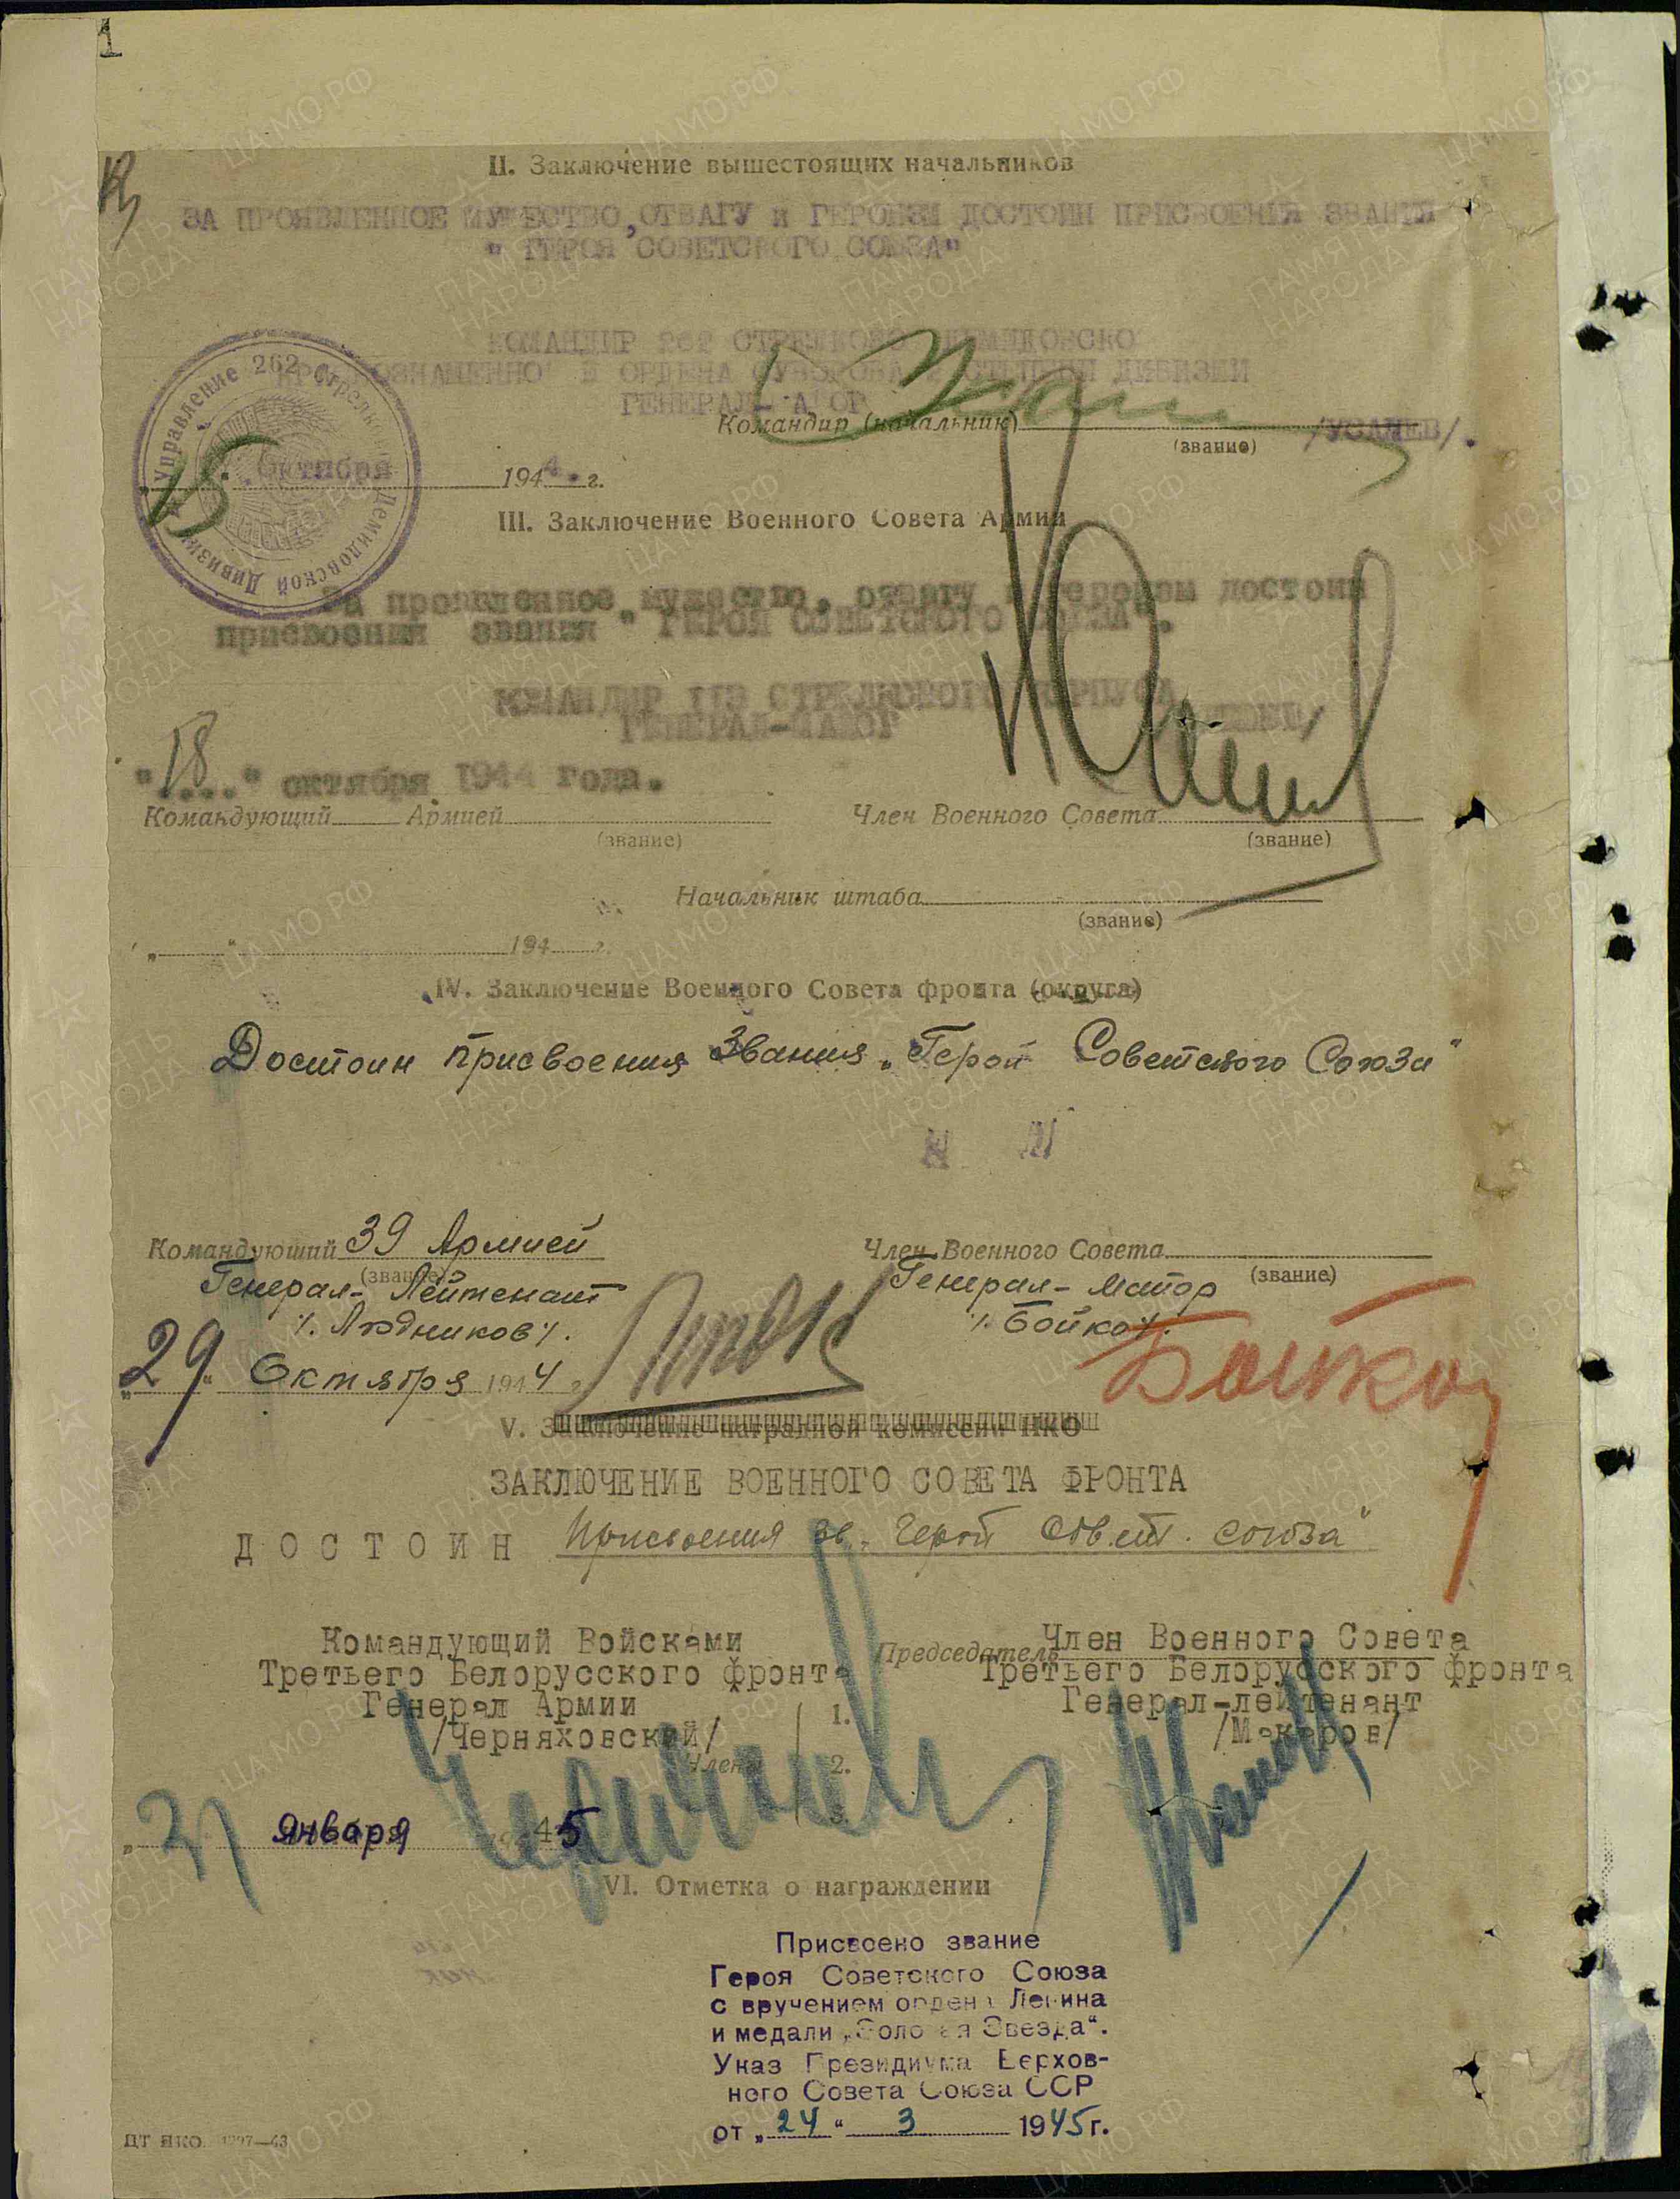 1
II. Заключение вышестоящих начальников
ЗА ПРОЯВЛЕННОЕ МУЖЕСТВО, ОТВАГУ и ГЕРОИЗМ ДОСТОИН ПРИСВОЕНИЯ ЗВАНИЯ
" ГЕРОЯ СОВЕТСКОГО СОЮЗА"
КОМАНДИР 262 СТРЕЛКОВО ДЕМИДОВСКО
КРАСНОЗНАМЕННО И ОРДЕНА СУВОРОВА СТЕПЕНИ ДИВИЗИИ
ГЕНЕРАЛ-МАЙОР
Командир (начальник) /УСАЧЕВ/.
(звание)
Управление 262 Стрелковой Демидовской Дивизии
"15" Октября 1944 г.
III. Заключение Военного Совета Армии
За проявленное мужество, отвагу и героизм достоин
присвоения звания " ГЕРОЯ СОВЕТСКОГО СОЮЗА".
КОМАНДИР 113 СТРЕЛКОВОГО КОРПУСА
ГЕНЕРАЛ-МАЙОР
"18" октября 1944 года.
Командующий Армией Член Военного Совета
(звание) (звание)
Начальник штаба
(звание)
" " 194 г.
IV. Заключение Военного Совета фронта (округа)
Достоин присвоения Звания „Герой Советского Союза"
Командующий 39 Армией Член Военного Совета
(звание) (звание)
Генерал-Лейтенант Генерал-майор
/. Людников /. /. Бойко /.
Бойко
„29" Октября 1944 г.
V. Заключение наградной комиссии НКО
ЗАКЛЮЧЕНИЕ ВОЕННОГО СОВЕТА ФРОНТА
ДОСТОИН Присвоения зв. „Герой Совет. союза"
Командующий Войсками Председатель Член Военного Совета
Третьего Белорусского фронта Третьего Белорусского фронта
Генерал Армии Генерал-лейтенант
/Черняховский/ /Макаров/
1.
Члены 2.
3.
„ 31 января 1945
VI. Отметка о награждении
Присвоено звание
Героя Советского Союза
с вручением ордена Ленина
и медали „Золотая Звезда".
Указ Президиума Верхов-
ного Совета Союза ССР
от „24" 3 1945 г.
ПАМЯТЬ НАРОДА
ЦАМО.РФ